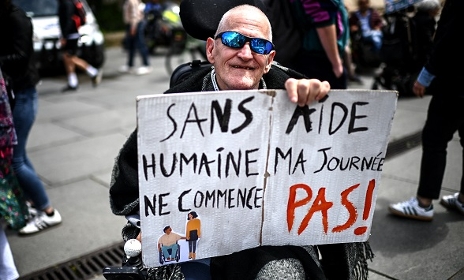 SANS AIDE
HUMAINE MA JOURNÉE
NE COMMENCE PAS!